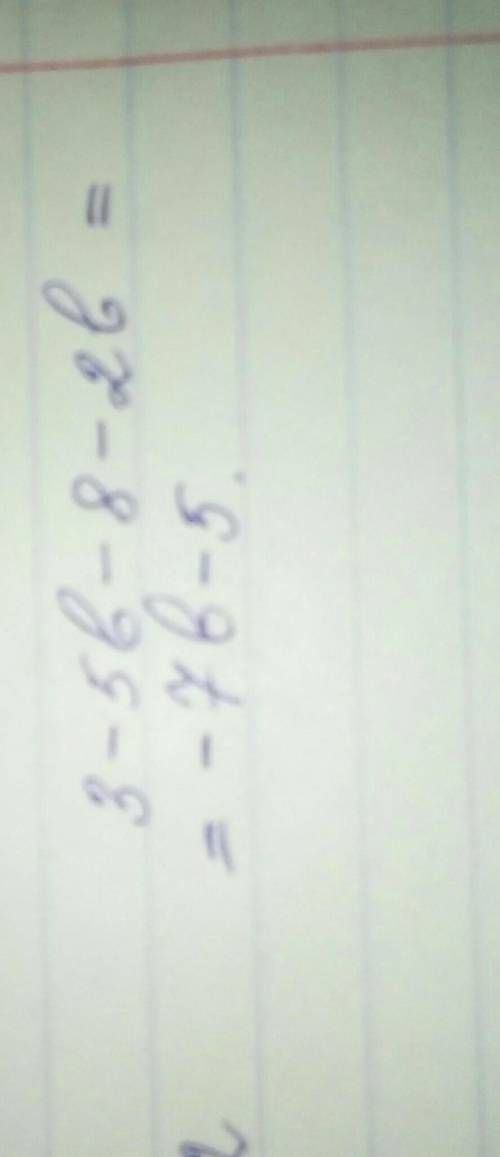 3 - 5b - 8 - 2b =
= - 7b - 5.